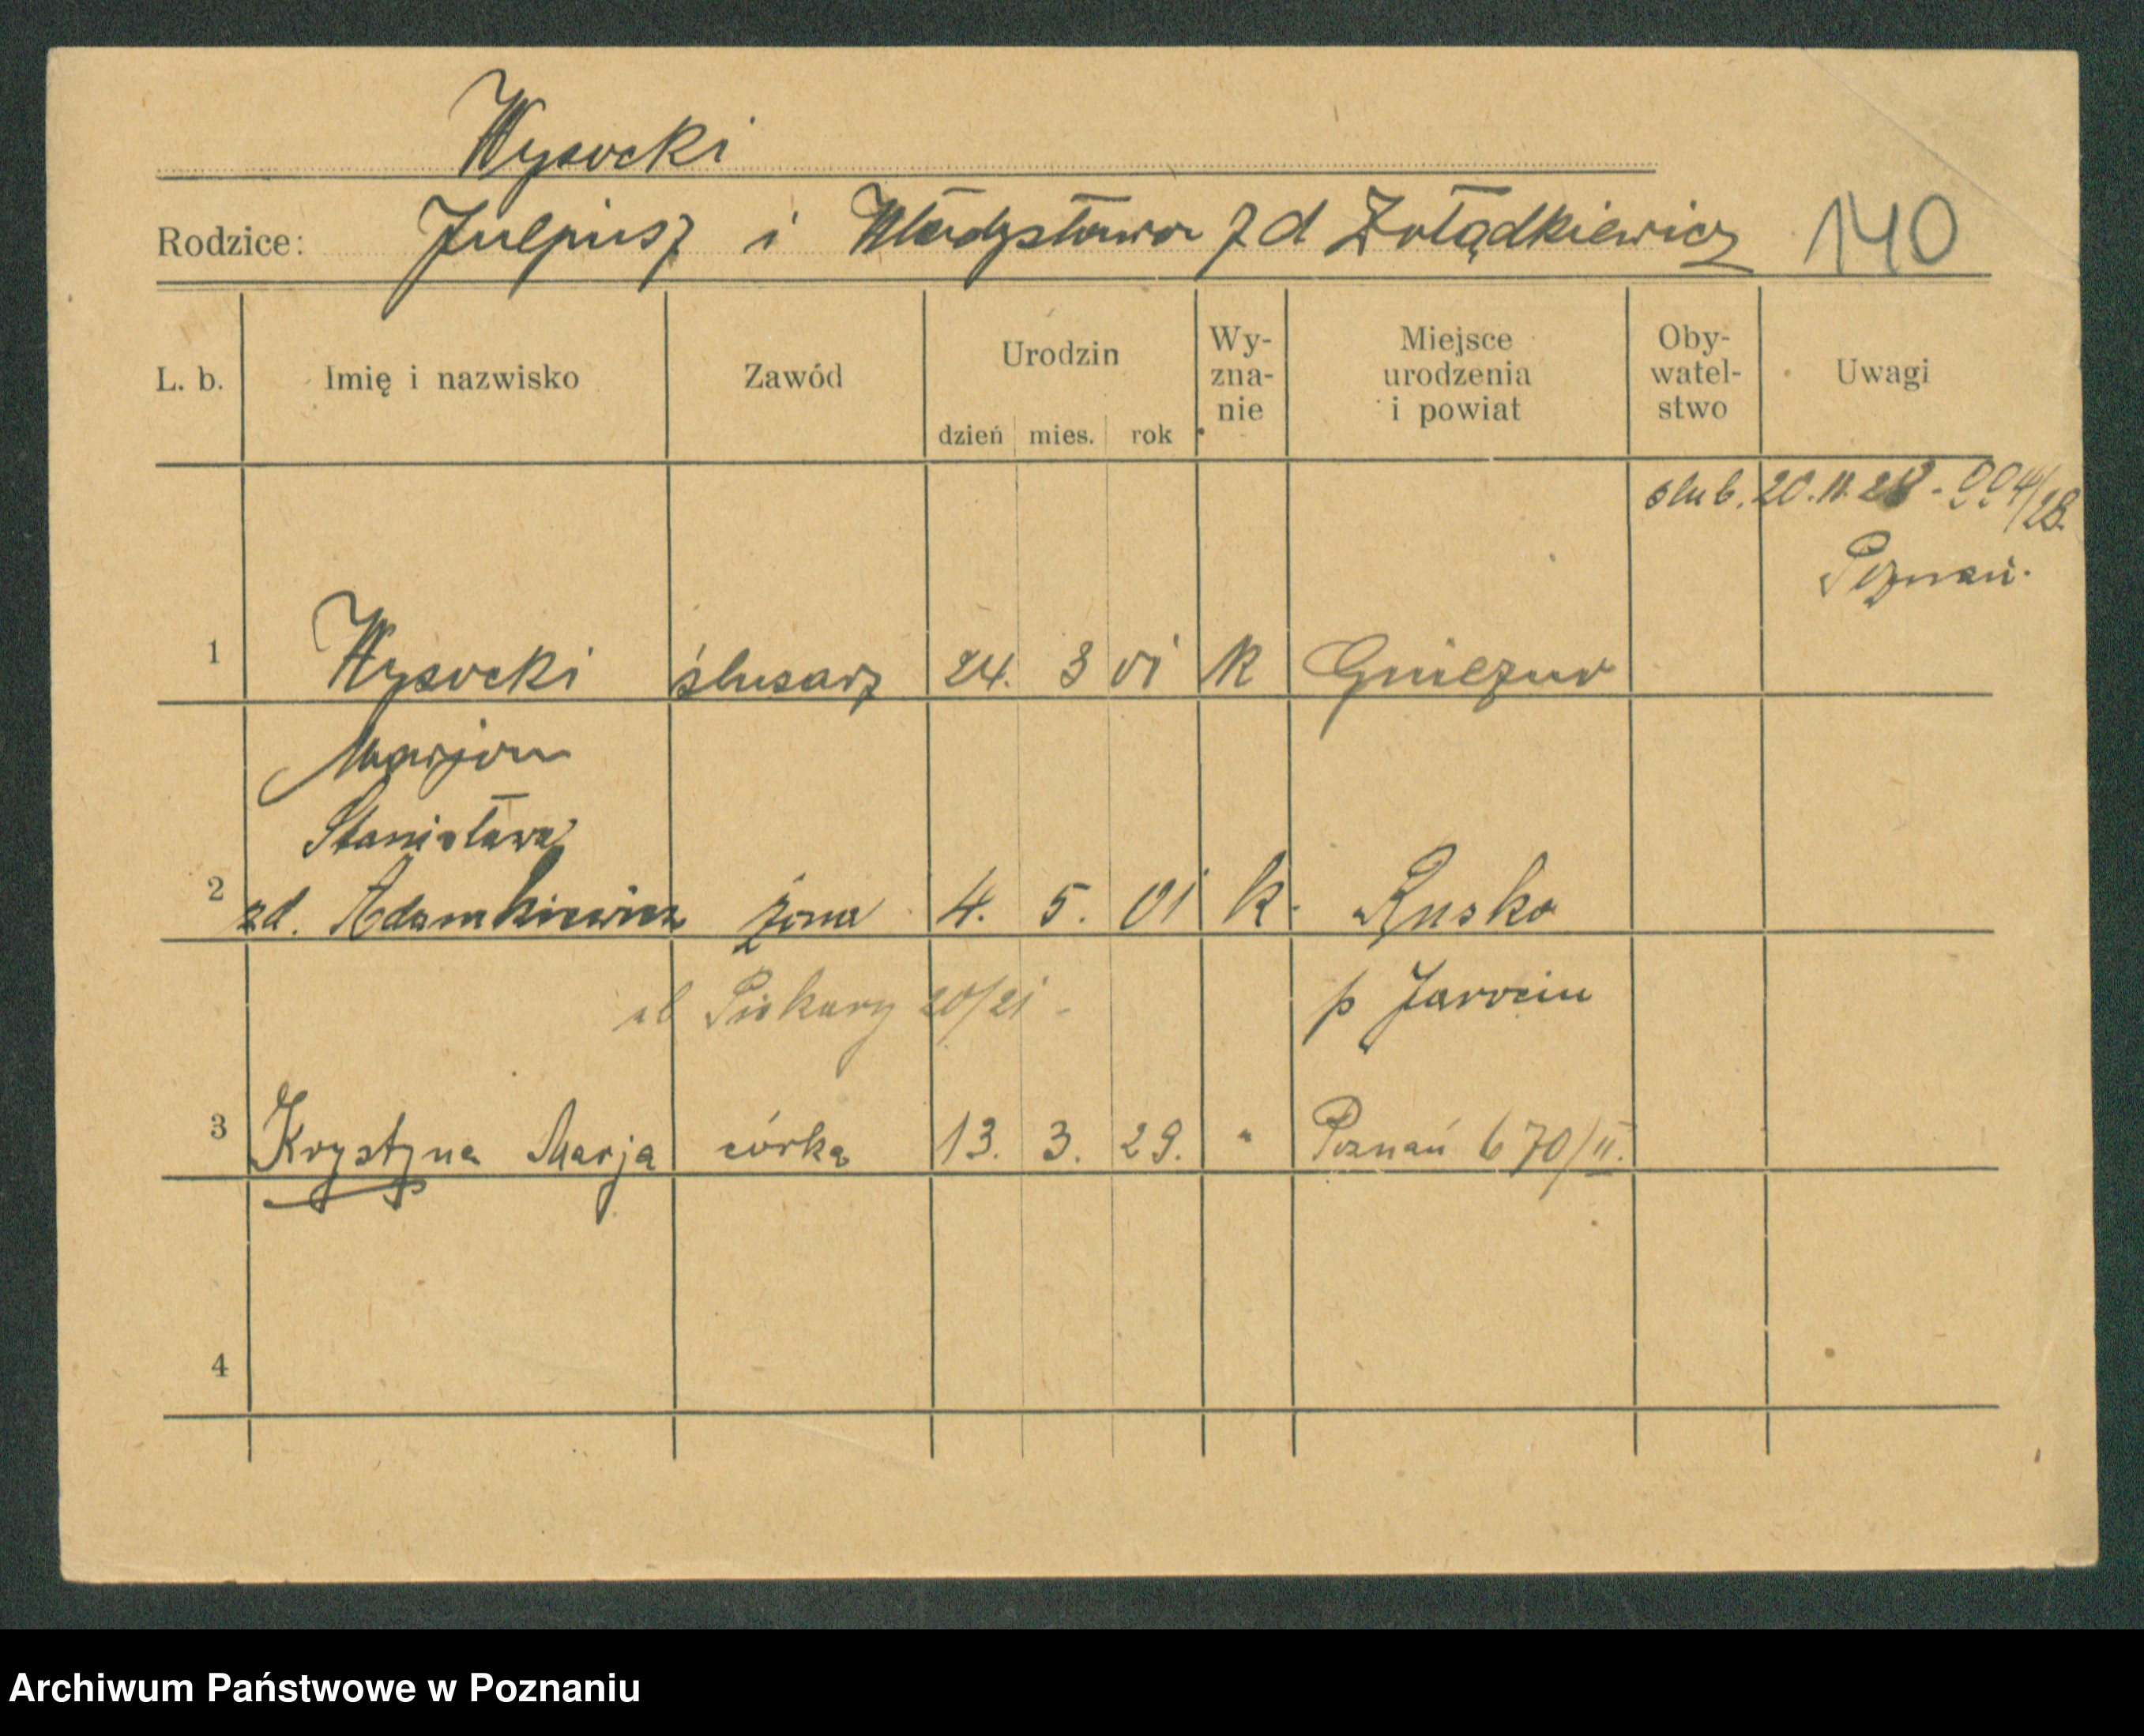 Wysocki
Rodzice: Juljusz i Władysława z d Żołądkiewicz 140
L. b. Imię i nazwisko Zawód Urodzin dzień mies. rok Wy-zna-nie Miejsce urodzenia i powiat Oby-watel-stwo Uwagi
ślub. 20.11.28 - 994/28.
Poznań.
1 Wysocki ślusarz 24. 3 01 k Gniezno
Marjan
Stanisława
2 zd. Adamkiewicz żona 4. 5. 01 k. Rusko
Piekary 20/21 - p Jarocin
3 Krystyna Marja córka 13. 3. 29. " Poznań 670/II.
4
Archiwum Państwowe w Poznaniu